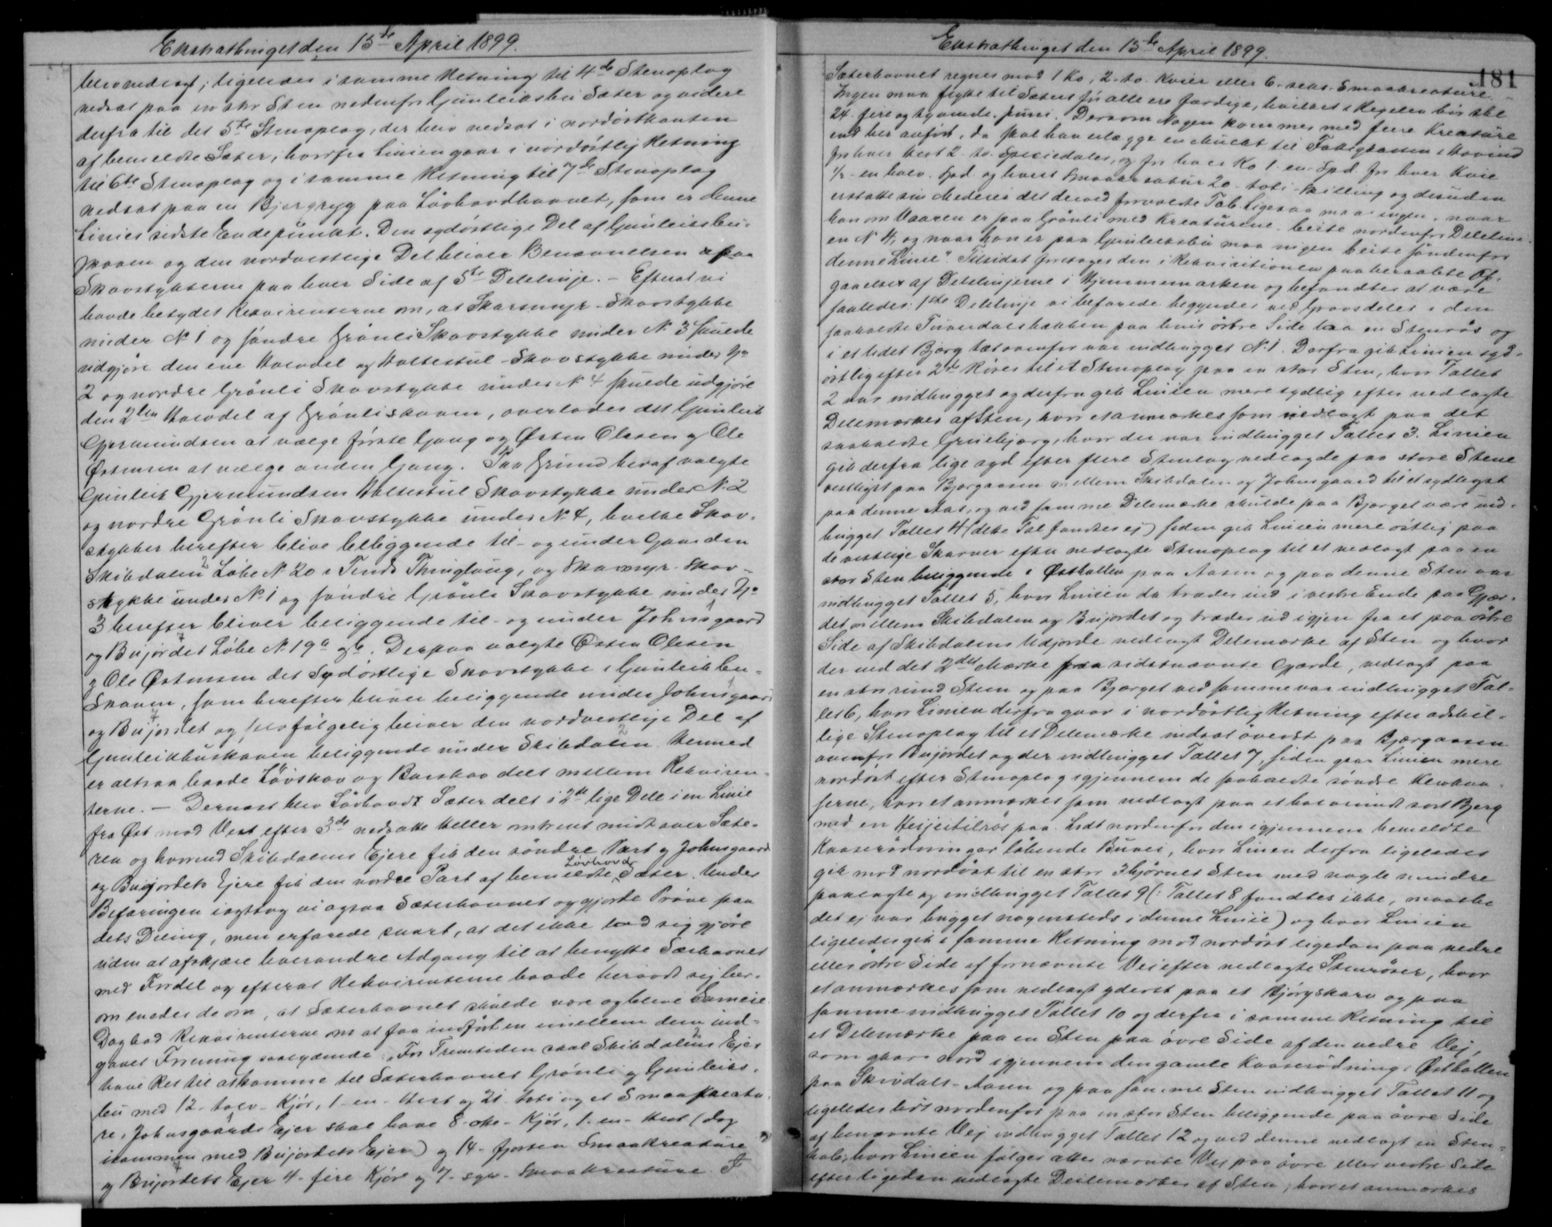 Extrathinget den 15de April 1899.
blev nedsat; ligeledes i samme Retning til 4de Stenoplag
nedsat paa en stor Sten nedenfor Gunleiksbu Sæter og videre
derfra til det 5te Stenoplag, der blev nedsat i nordøstkanten
af bemeldte Sæter, hvorfra Linien gaar i nordøstlig Retning
til 6te Stenoplag og i samme Retning til 7de Stenoplag
nedsat paa en Bjergryg paa Løvhovdhavnet, som er denne
Linies sidste Endepunkt. Den sydøstlige Del af Gunleiksbu-
skoven og den nordvestlige Del bliver Benævnelsen paa
Skovstykkerne paa hver Side af 5te Delelinje. — Efterat vi
havde betydet Rekvirenterne om, at Skarsmyr-Skovstykke
under N 1 og søndre Grønli Skovstykke under N 3 skulde
udgjøre den ene Halvdel og Haltestul-Skovstykke under No
2 og nordre Grønli Skovstykke under N 4 skulde udgjøre
den 2den Halvdel af Grønliskoven, overlodes det Gunleik
Gjermundsen at vælge første Gang og Østen Olesen og Ole
Østensen at vælge anden Gang. Paa Grund heraf valgte
Gunleik Gjermundsen Haltestul Skovstykke under N 2
og nordre Grønli Skovstykke under N 4, hvilke Skov-
stykker herefter blive beliggende til- og under Gaarden
Skibdalen Løbe N 20 i Tinds Thinglaug, og Skarsmyr-Skov-
stykke under N 1 og søndre Grønli Skovstykke under No
3 herefter bliver beliggende til- og under Johnsgaard
og Bujordet Løbe N 19a og b. Derpaa valgte Østen Olesen
og Ole Østensen det Sydøstlige Skovstykke i Gunleiksbu-
Skoven, som herefter bliver beliggende under Johnsgaard
og Bujordet og selvfølgelig bliver den nordvestlige Del af
Gunleiksbuskoven beliggende under Skibdalen. Hermed
er altsaa baade Løvskov og Barskov delt mellem Rekviren-
terne. — Dernæst blev Løvhovd Sæter delt i 2de lige Dele i en Linie
fra Øst mod Vest efter 3de nedsatte Heller omtrent midt over Sæte-
ren og hvorved Skibdalens Ejere fik den søndre Part og Johnsgaard
og Bujordets Ejere fik den nordre Part af bemeldte Løvhovd Sæter. Under
Befaringen iagttog vi ogsaa Sæterhavnet og gjorde Prøve paa
dets Deling, men erfarede snart, at det ikke lod sig gjøre
uden at afskjære hverandre Adgang til at benytte Sæterhavnet
med Fordel og efterat Rekvirenterne havde
om enedes de om, at Sæterhavnet skulde være og blive Sameie
Dog bad Rekvirenterne om at faa indført en imellem dem ind-
gaaet Forening saalydende: „For Fremtiden skal Skibdalens Ejer
have Ret til at komme til Sæterhavnet Grønli og Gunleiks-
bu med 12-tolv-Kjør, 1-en-Hest og 21-toti og et Smaakreatu-
re, Johnsgaards Ejer skal have 8-otte-Kjør, 1-en-Hest (dog
isammen med Bujordets Ejer) og 14-fjorten Smaakreature
og Bujordets Ejer 4-fire Kjør og 7-syv-Smaakreature. I
Extrathinget den 15de April 1899.
181
Sæterhavnet regnes mod 1 Ko, 2-to-Kvier eller 6-seks-Smaakreature.
Ingen maa flytte til Sæters før alle ere færdige, hvilket i Regelen bør ske
24 fire og tyvende Juni. Dersom Nogen kommer med flere Kreature
end her anført, da skal han udlægge en Mulkt til Fattigkassen i Hovind
for hver Hest 2-to-Speciedaler, og for hver Ko 1-en-Spd. for hver Kvie
½-en halv-Spd. og hvert Smaakreatur 20-toti-Skilling og desuden
erstatte sin Mederier det derved forvoldte Tab. Ligesaa maa ingen, naar
han om Vaaren er paa Grønli med Kreaturene beite nordenfor Delelini-
en N 4, og naar han er paa Gunleiksbu maa ingen beite søndenfor
denne Linie“. Tilsidst foretoges den i Rekvisitionen paaberaabte Op-
gaaelse af Delelinjerne i Hjemmemarken og befandtes at være
saaledes: 1ste Delelinje vi befarede begyndes ved Gravsdelet i den
saakaldte Tuvedalsbækken paa hvis østre Side laa en Stenrøs og
i et lidet Bjerg tætovenfor var indhugget N 1. Derfra gik Linien syd-
østlig efter 2de Røser til et Stenoplag paa en stor Sten, hvor Tallet
2 var indhugget og derfra gik Linien mere sydlig efter nedlagte
Delemærker af Sten, hvor et anmærkes som nedlagt paa det
saakaldte Gruebjerg, hvor der var indhugget Tallet 3. Linien
gik derfra lige syd efter flere Stenlag nedlagde paa store Stene
vestligst paa Bjergaasen mellem Skibdalen og Johnsgaard til et sydligst
paa denne Aas, og ved samme Delemærke skulde paa Bjerget være ind-
hugget Tallet 4 (dette Tal fandtes ej) siden gik Linien mere østlig paa
de vestlige Skarver efter nedlagte Stenoplag til et nedlagt paa en
stor Sten beliggende i Østhallen paa Aasen og paa denne Sten var
indhugget Tallet 5, hvor Linien da træder ind i vestre Ende paa Gjær-
det mellem Skibdalen og Bujordet og træder ud igjen fra et paa østre
Side af Skibdalens Udjorde nedlagt Delemærke af Sten og hvor
der ved det 2det Mærke fra sidstnævnte Gjærde, nedlagt paa
en stor rund Sten og paa Bjerget ved samme var indhugget Tal-
let 6, hvor Linien derfra gaar i nordøstlig Retning efter adskil-
lige Stenoplag til et Delemærke indsat øverst paa Bjergaasen
ovenfor Bujordet og der indhugget Tallet 7, siden gaar Linien mere
nordøst efter Stenoplag igjennem de saakaldte søndre
hvor et anmærkes som nedlagt paa et Bjerg
med en paa. Lidt nordenfor den igjennem bemeldte
løbende Buvei, hvor Linien derfra ligeledes
gik mod nordøst til en stor 3hjørnet Sten med nogle mindre
paalagte og indhugget Tallet 9 (: Tallet 8 fandtes ikke, maatte
det ej var hugget nogensteds i denne Linie) og hvor Linien
ligeledes gik i samme Retning mod nordøst ligedan paa nedre
eller østre Side af fornævnte Vei efter nedlagte Stenrøser, hvor
et anmærkes som nedlagt yderst paa et Bjergskarv og paa
samme indhugget Tallet 10 og derfra i samme Retning til
et Delemærke paa en Sten paa øvre Side af den nedre Vej,
som gaar nord igjennem den gamle i Østhallen
paa Skivdals-Aasen og paa samme Sten indhugget Tallet 11 og
ligeledes lidt nordenfor paa en stor Sten beliggende paa øvre Side
af benævnte Vej indhugget Tallet 12 og ved denne nedlagt en Sten-
hob, hvor Linien følger alter nævnte Vej paa øvre eller vestre Side
efter ligedan nedlagte Deilemærker af Sten, hvor et anmærkes